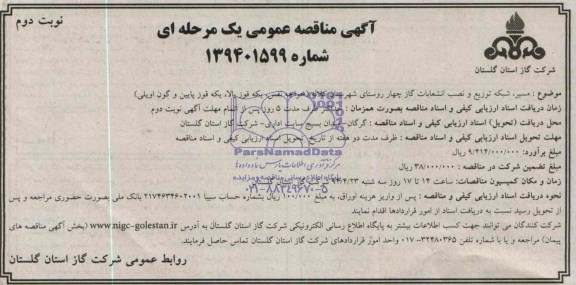 نوبت دوم
آگهی مناقصه عمومی یک مرحله ای
شماره ۱۳۹۴۰۱۵۹۹
شرکت گاز استان گلستان
موضوع : مسیر، شبکه توزیع و نصب انشعابات گاز چهار روستای شهرستان یکه قوز بالا، یکه قوز پایین و گون اویلی)
زمان دریافت اسناد ارزیابی کیفی و اسناد مناقصه بصورت همزمان : ظرف مدت ۵ روز پس از اتمام مهلت آگهی نوبت دوم
محل دریافت (تحویل) اسناد ارزیابی کیفی و اسناد مناقصه : گرگان- میدان بسیج سایت اداری- شرکت گاز استان گلستان
مهلت تحویل اسناد ارزیابی کیفی و اسناد مناقصه : ظرف مدت دو هفته از تاریخ تحویل اسناد ارزیابی کیفی و اسناد مناقصه
مبلغ برآورد: ۹/۴۱۲/۰۰۰/۰۰۰ ریال
مبلغ تضمین شرکت در مناقصه : ۳۸۰/۰۰۰/۰۰۰ ریال
زمان و مکان کمیسیون مناقصات: ساعت ۱۴ تا ۱۷ روز سه شنبه گاز استان گلستان
نحوه دریافت اسناد ارزیابی کیفی و مناقصه : پس از واریز هزینه اوراق، به مبلغ ۱۰۰/۰۰۰ ریال بشماره حساب سیبا ۲۱۷۴۶۳۴۶۰۲۰۰۱ بانک ملی بصورت حضوری مراجعه و پس از تحویل رسید نسبت به دریافت اسناد از امور قراردادها اقدام نمایند
شرکت کنندگان می توانند جهت کسب اطلاعات بیشتر به پایگاه اطلاع رسانی الکترونیکی شرکت گاز استان گلستان به آدرس www.nigc-golestan.ir (بخش آگهی مناقصه های پیمان) مراجعه و یا با شماره تلفن ۳۲۴۸۰۳۶۵-۰۱۷ واحد امور قراردادهای شرکت گاز استان گلستان تماس حاصل فرمایند.
روابط عمومی شرکت گاز استان گلستان
ParsNamadData
۰۲۱-۸۸۳۴۹۶۷۰-۵